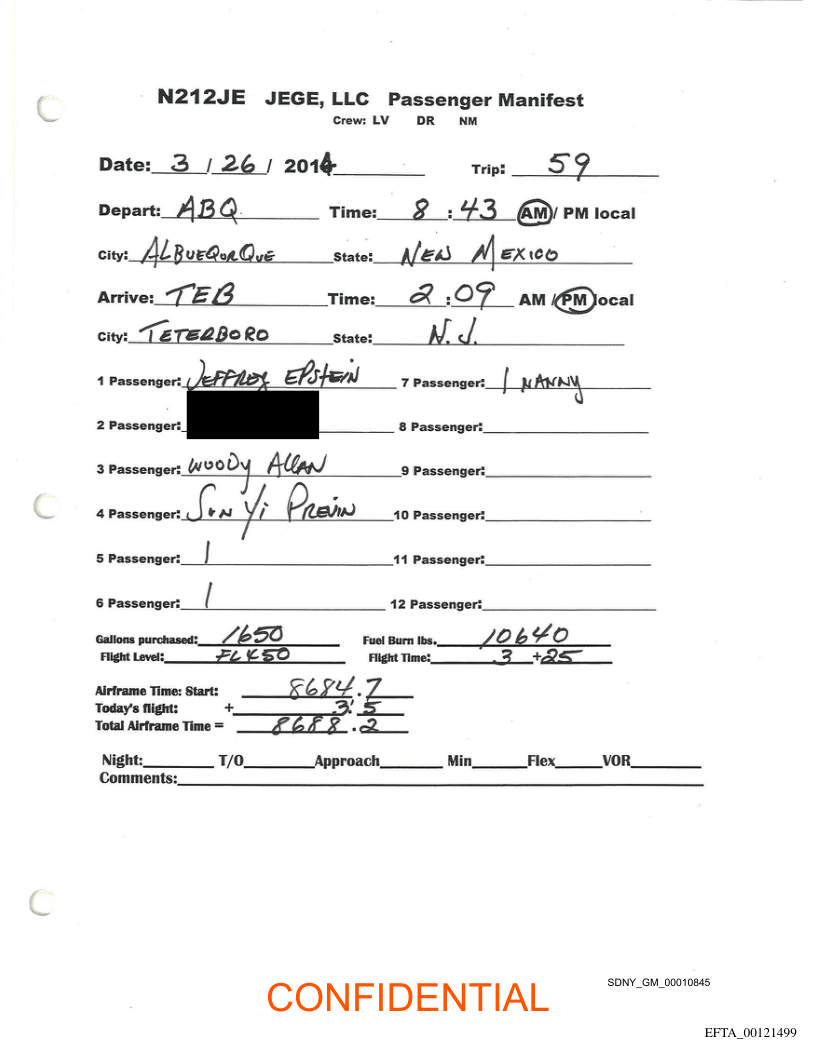 N212JE JEGE, LLC Passenger Manifest
Crew: LV DR NM
Date: 3 / 26 / 2014 Trip: 59
Depart: ABQ Time: 8 : 43 AM / PM local
City: ALBUEQURQUE State: NEW MEXICO
Arrive: TEB Time: 2 : 09 AM / PM local
City: TETERBORO State: N.J.
1 Passenger: JEFFREY EPSTEIN 7 Passenger: 1 NANNY
2 Passenger: 8 Passenger:
3 Passenger: WOODY ALLAN 9 Passenger:
4 Passenger: SON YI PREVIN 10 Passenger:
5 Passenger: | 11 Passenger:
6 Passenger: | 12 Passenger:
Gallons purchased: 1650 Fuel Burn lbs. 10640
Flight Level: FL450 Flight Time: 3 +25
Airframe Time: Start: 8684.7
Today's flight: + 3.5
Total Airframe Time = 8688.2
Night: T/O Approach Min Flex VOR
Comments:
SDNY_GM_00010845
CONFIDENTIAL
EFTA_00121499